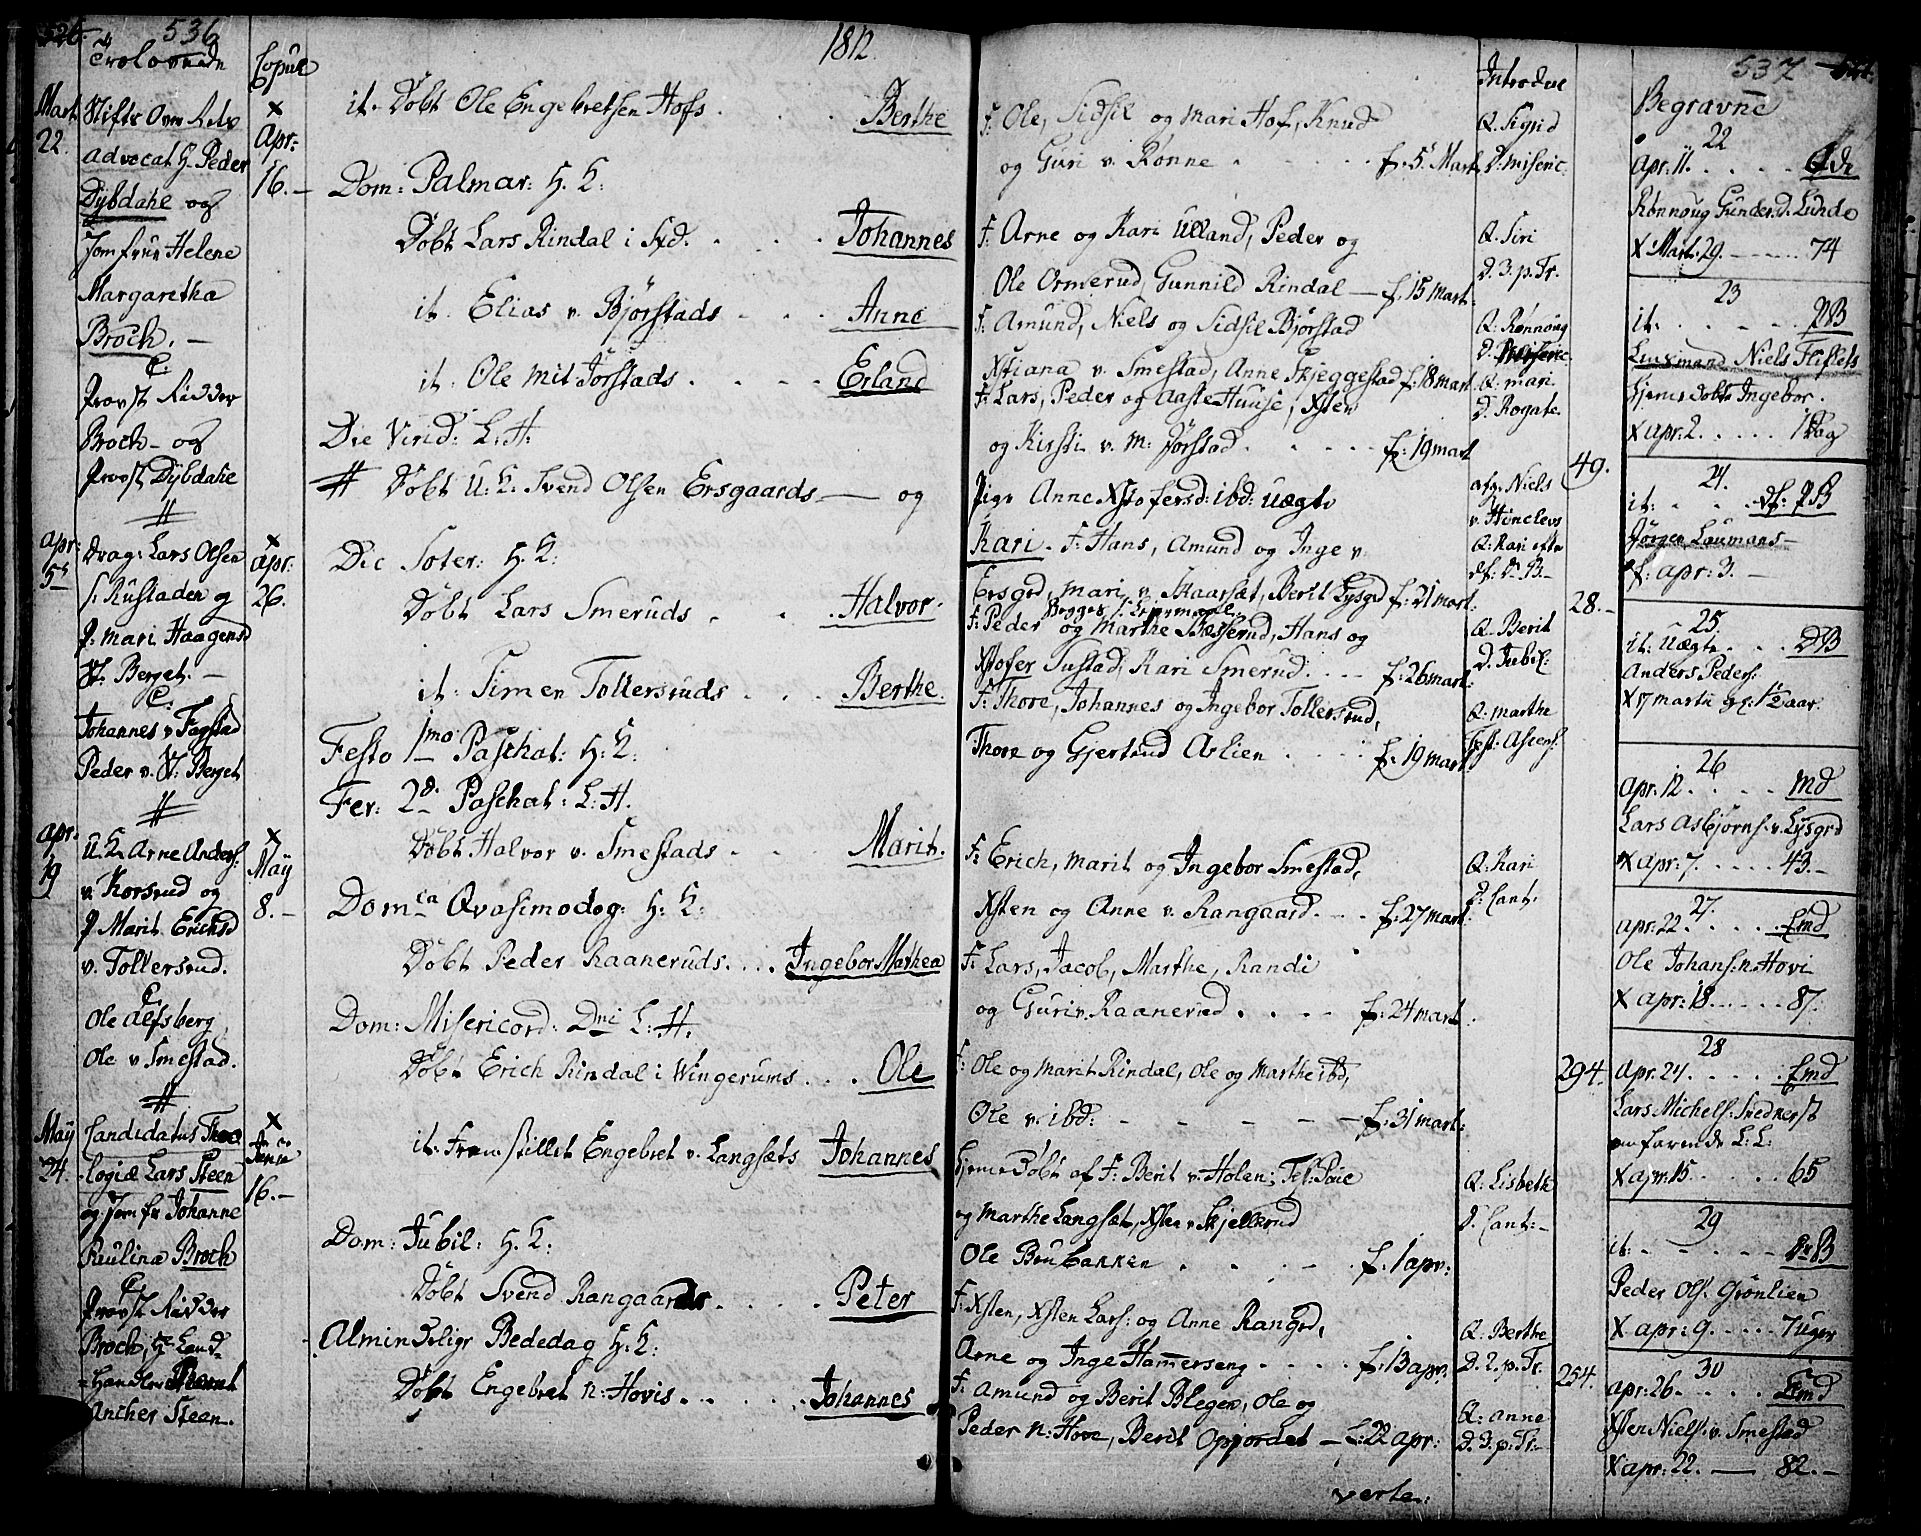 536
1812
Trolovede
Copul
Mart
22
Stifts Over Rets
Advocat H. Peder
Dybdahl og
Jomfrue Helene
Margaretha
Broch. –
C:
Provst Ridder
Broch – og
Provst Dybdahl
x
Apr:
16. –
Apr:
5
Drag: Lars Olsen
s. Rustaden og
P. Mari Haagensd
St. Berget. –
C:
Johannes v Fagstad
Peder v. St: Berget
x
Apr:
26.
Apr:
19
U. K. Arne Anders.
v. Korsrud og
P Marit Erichsd
v. Tollersrud.
C.
Ole Alfsberg
Ole v Smestad.
x
May
8. –
May
24.
Candidatus Theo
logiæ Lars Steen
og Jomfr Johanne
Paulina Broch
C
Provst Ridder
Broch, Hr Land=
=handler
Ancher Steen.
x
Junii
16. –
it. Døbt Ole Engebretsen Hofs . . . Berthe
Dom: Palmar: H. K:
Døbt Lars Rindal i Syd. . . . Johannes
it. Elias v. Bjørstads . . . Anne
it. Ole Mit Jørstads . . . . Erland
Die Virid: L: H:
# Døbt U: K: Svend Olsen Ersgaards — og
Die Soter: H. K:
Døbt Lars Smeruds . . . Halvor.
it. Simen Tollersruds . . . Berthe.
Festo 1mo Paschat: H: K:
Fer: 2d. Paschat: L: H.
Døbt Halvor v. Smestads . . . Marit.
Domca Qvasimodog: H: K:
Døbt Peder Raaneruds. . . . Ingebor Mathea
Dom: Misericord: Dni L: H.
Døbt Erich Rindal i Wingerums . . . Ole
it: Fremstillet Engebret v. Langsæts Johannes
Dom: Jubil: H. K:
Døbt Svend Rangaards . . . . Peter
Almindelige Bededag H: K:
Døbt Engebret n: Hovis . . . . . Johannes
537
Introduc
Begravne
F: Ole, Sidsil og Mari Hof, Knud
og Guri v. Rønne . . . . f: 5 Mart
F: Arne og Kari Ulland, Peder og
Ole Ormerud, Gunnild Rindal — f. 15 mart:
F: Amund, Niels og Sidsil Bjørstad
Xstiana v. Smestad, Anne Skjeggestad f: 18 mart
F: Lars, Peder og Aaste Huuse, Xsten
og Kirsti v. M: Jørstad . . . . f: 19 mart
Pige Anne Xstofersd: ibd: uægte
Kari. F: Hans, Amund og Inge v.
Ersgrd, Mari v. Skaarsæt, Berit Lysgrd f: 21 mart:
Begges 1. Leiermaal.
F: Peder og Marthe Skesserud, Hans og
Xstofer Tustad, Kari Smerud. . . . f: 26 mart:
F: Thore, Johannes og Ingebor Tollersrud,
Thore og Gjertrud Aslien . . . . f: 19 mart
F: Erich, Marit og Ingebor Smestad,
Xsten og Anne v. Rangaard. . . . f: 27 mart:
F: Lars, Jacob, Marthe, Randi
og Guri v. Raanerud . . . . f: 24 mart.
F: Ole og Marit Rindal, Ole og Marthe ibd,
Ole v. ibd: – – – – f: 31 mart:
Hjemedøbt af F: Berit v. Holen; Test: Paie
og Marthe Langsæt, Xsten v Skjellerud
Ole Brubakken . . . – . f. 1 apr:
F: Xsten, Xsten Lars: og Anne Rangrd,
Arne og Inge Hammerseng . . . . f: 13 apr.
F: Amund og Berit Bleger, Ole og
Peder n: Hove, Berit Opjordet – f: 22 apr:
verte.:
Q. Sigrid
D. Miseric.
Q. Siri
D. 3. p. Tr.
Q: Rønnoug
D. Miseric.
Q. Mari.
D. Rogate.
afg. Niels
Q: Kari
Q. Berit
D. Jubil:
Q: Marthe
Fest: Ascens.
Q: Kari
D: Cant.
Q: Lisbeth
D. Cant: –
Q: Berthe
D. 2. p. Tr.
Q: Anne
D. 3. p: Tr: –
49.
28. –
294.
254.
22
Apr: 11. . . . . .
Rønnoug Gundersd. Lunde
X Mart: 29. – . . . 74
23
it: . . . . . PB
Leuxmand Niels Fliflets
hjemedøbte Ingebor.
X apr: 2. . . . . 1 Dag
24.
it: . . . df: PB
Jørgen Laumans –
df: apr: 3. –
25
it: uægte . . . DB
Anders Peders:
X 7 martii gl: 1 1/2 Aar.
26
apr. 12 . . . . md
Lars Asbjørns. v. Lysgrd
X apr: 7. . . . 43. –
27.
apr: 22. . . . . Emd
Ole Johans: n: Hovi
X apr: 18. . . . . 87.
28
Apr. 24. . . . . Emd
Lars Michels:
omfarende L: L:
X apr: 15 . . . . . 65
29
it: – – – – DrB
Peder Ols. Grønlien
X apr: 9. . . . . 7 uger
30
apr: 26. . . . . Emd
Xsten Niels: v. Smestad
X apr: 22. — 82. –